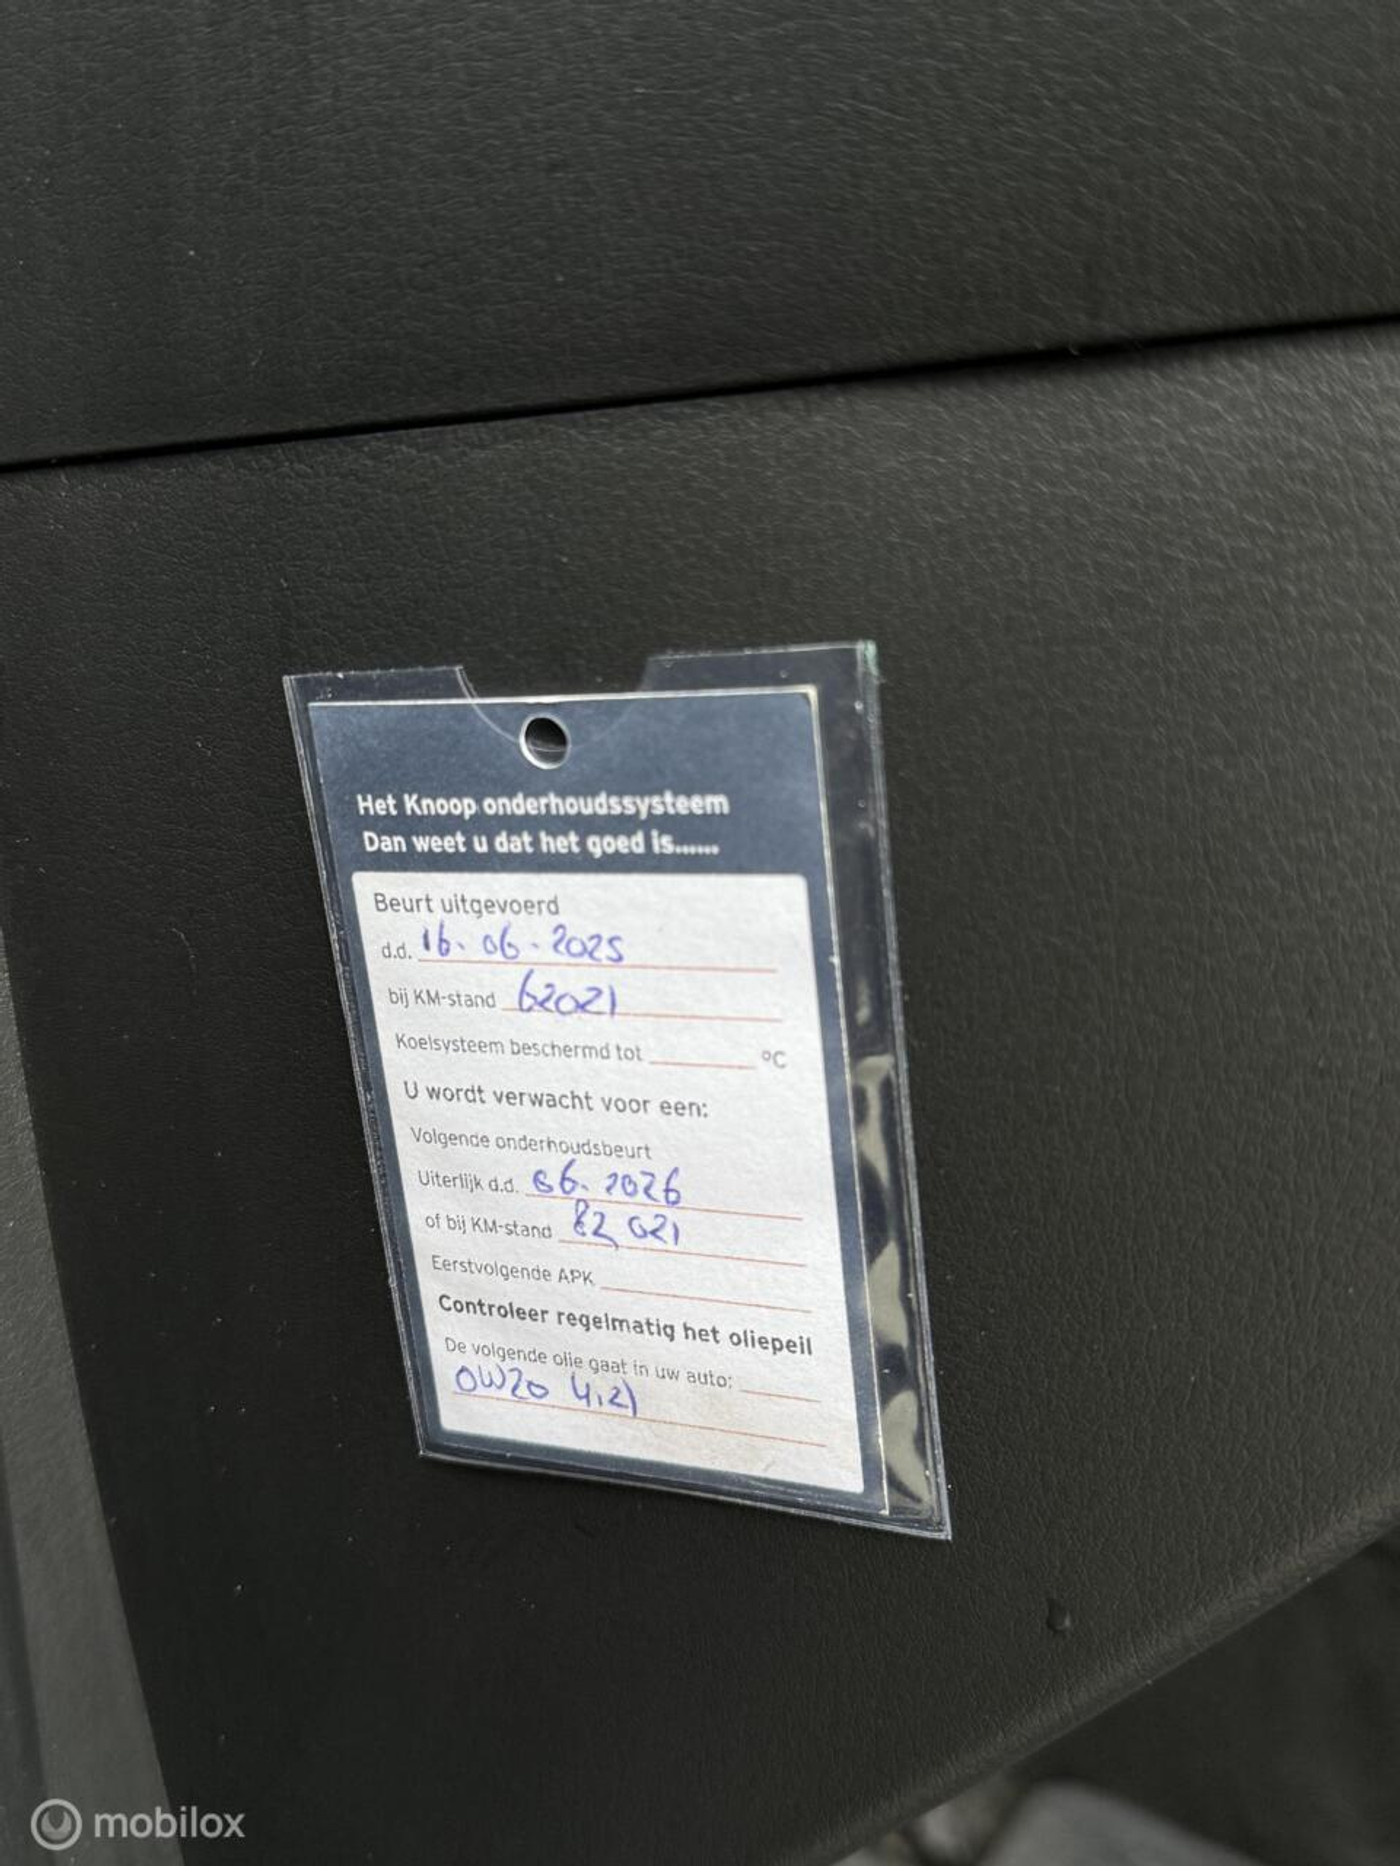 Het Knoop onderhoudssysteem
Dan weet u dat het goed is......
Beurt uitgevoerd
d.d. 16-06-2025
bij KM-stand 62021
Koelsysteem beschermd tot ______ °C
U wordt verwacht voor een:
Volgende onderhoudsbeurt
Uiterlijk d.d. 06-2026
of bij KM-stand 82021
Eerstvolgende APK
Controleer regelmatig het oliepeil
De volgende olie gaat in uw auto:
0W20 4,2l
mobilox